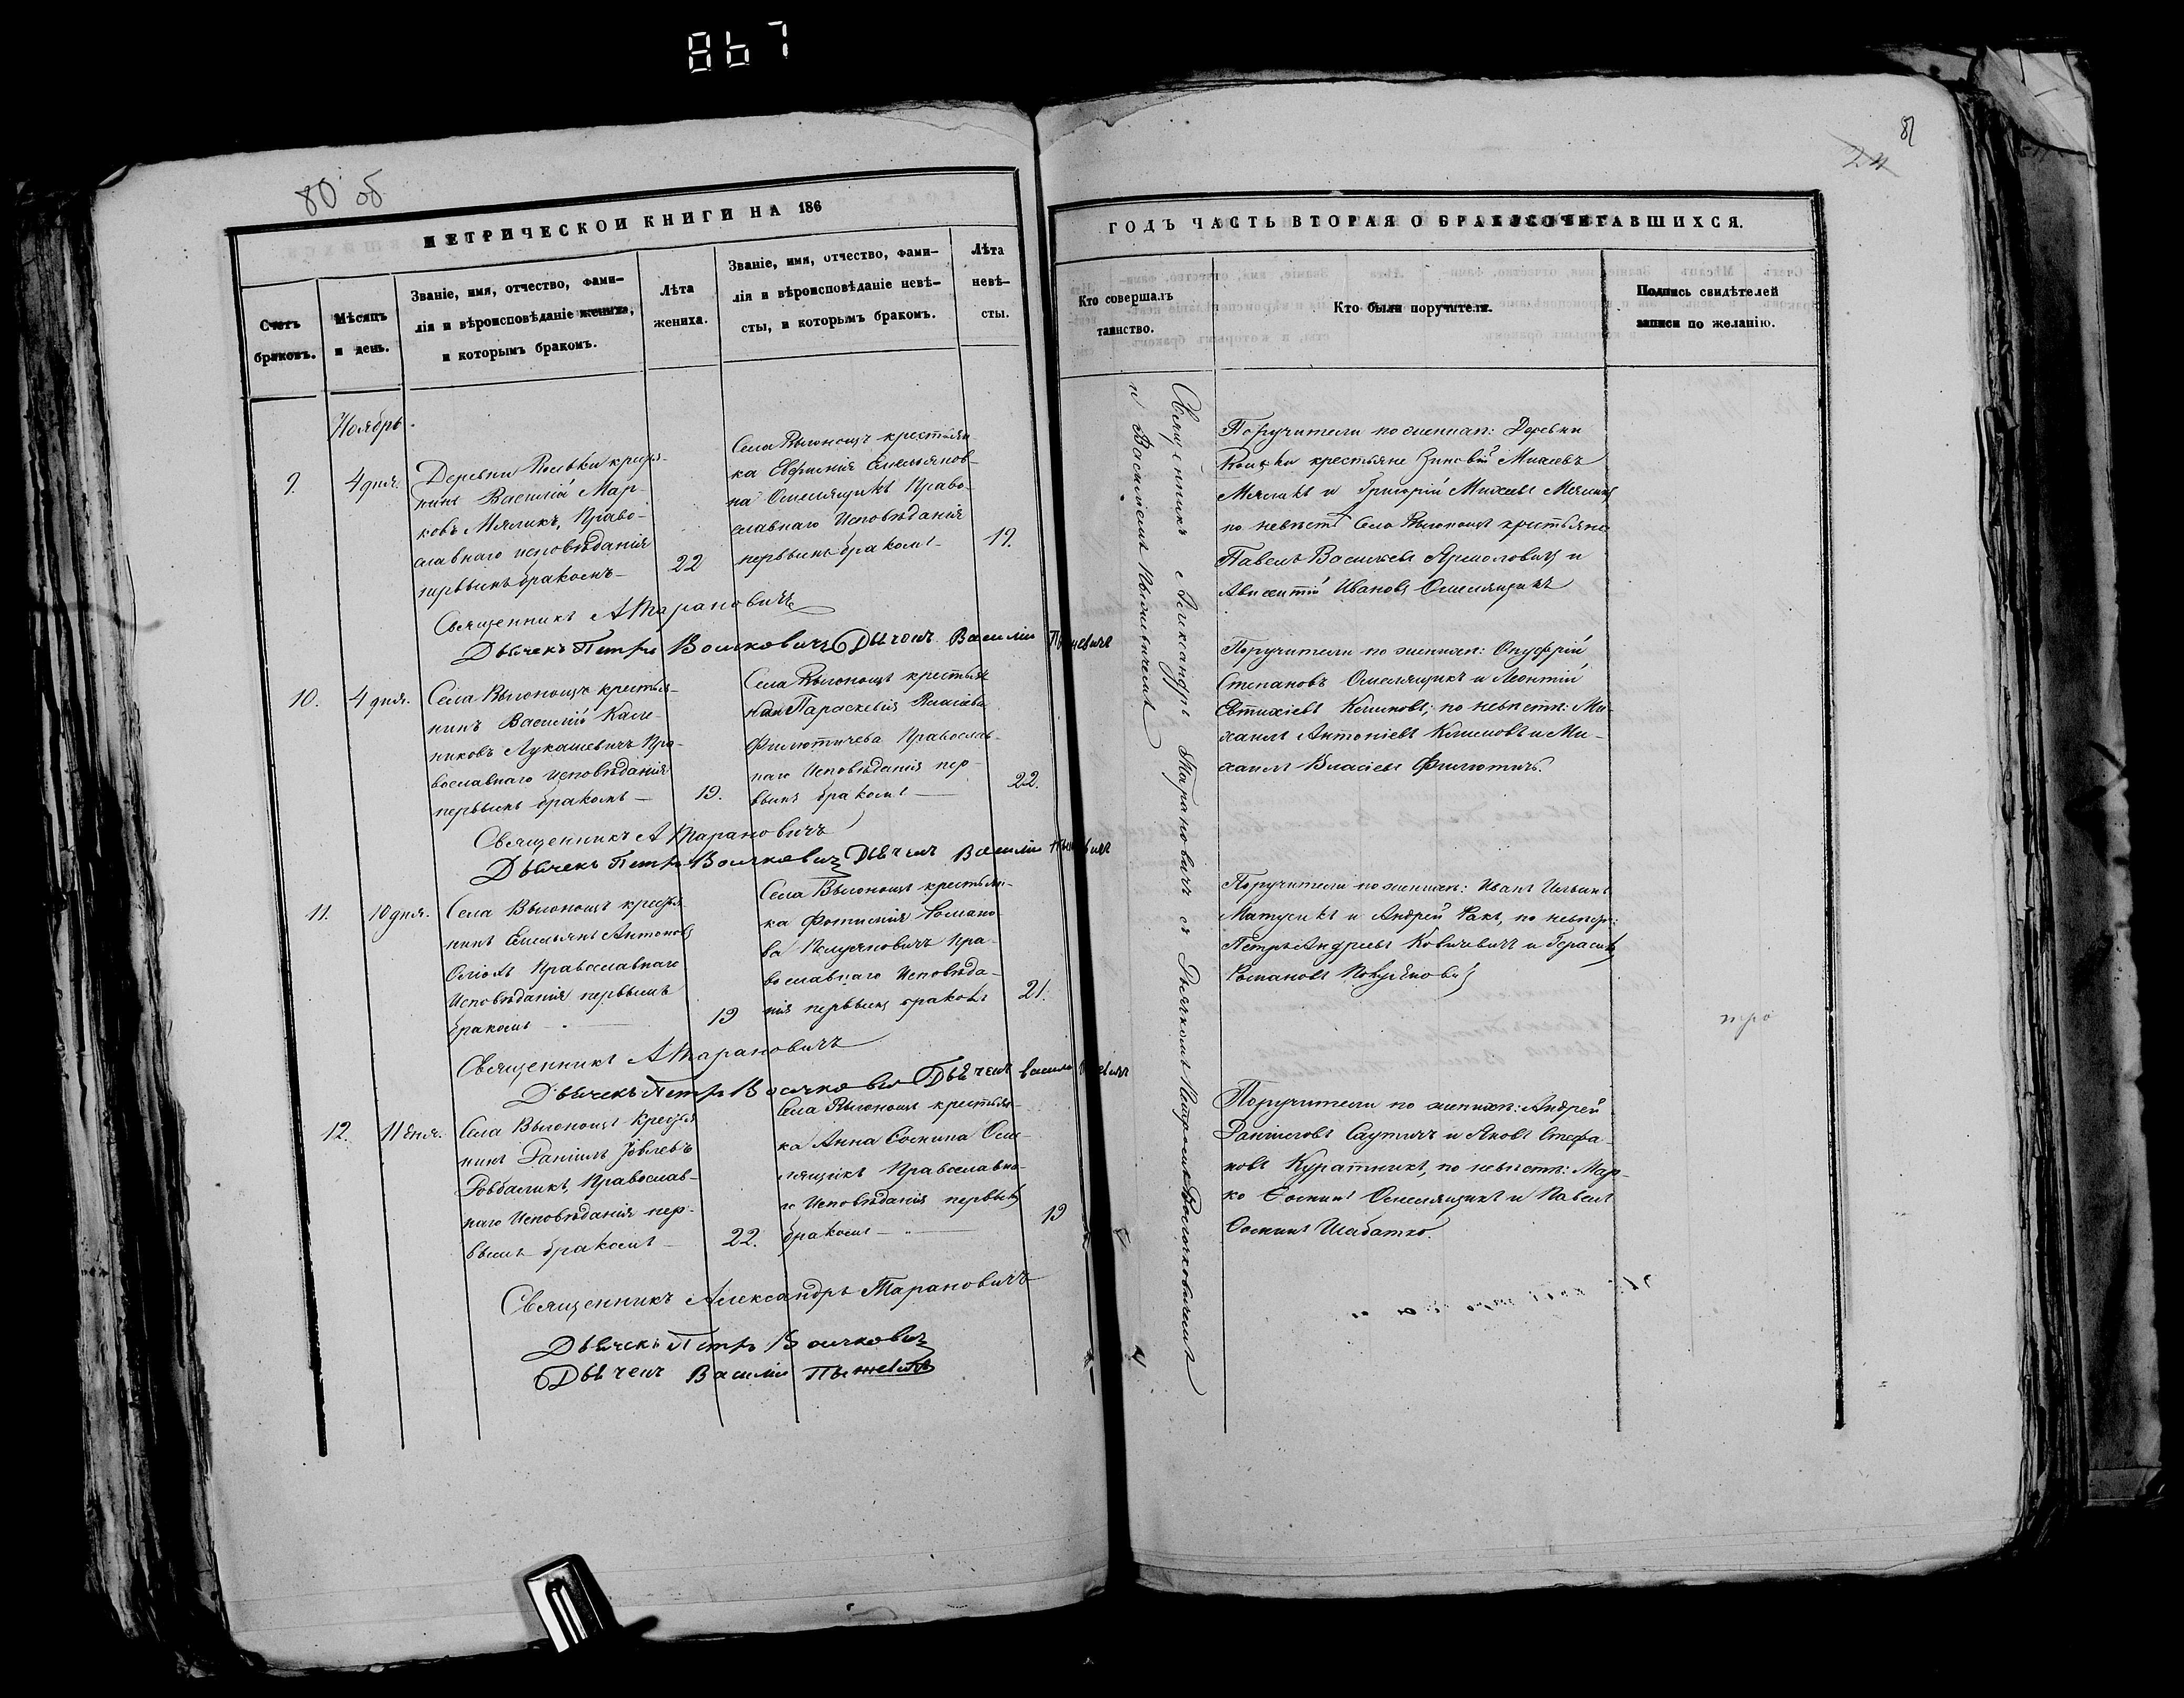 867
80 об
МЕТРИЧЕСКОЙ КНИГИ НА 186
Счетъ браковъ.
Мѣсяцъ и день.
Званіе, имя, отчество, фами-
лія и вѣроисповѣданіе жениха,
и которымъ бракомъ.
Лѣта жениха.
Званіе, имя, отчество, фами-
лія и вѣроисповѣданіе невѣ-
сты, и которымъ бракомъ.
Лѣта невѣ-
сты.
Ноябрь.
9.
4 дня.
Деревни крестья-
нинъ Василій Мар-
ковъ Мялик, Право-
славнаго исповѣданія
первымъ бракомъ
22
Села Выгонощъ крестьян-
ка Евфимія Емельянов-
на Омелящикъ Право-
славнаго Исповѣданія
первымъ бракомъ
19.
Священникъ А Тарановичъ
Дьячекъ Петръ Волчковичъ Дьячекъ Василій
10.
4 дня.
Села Выгонощъ крестья-
нинъ Василій
Лукашевичъ Пра-
вославнаго Исповѣданія
первымъ бракомъ
19.
Села Выгонощъ крестьян-
Параскевія Власіева
Филютичева Православ-
наго Исповѣданія пер-
вымъ бракомъ
22.
Священникъ А Тарановичъ
Дьячекъ Петръ Волчковичъ Дьячекъ Василій
11.
10 дня.
Села Выгонощъ крестья-
нинъ Емельянъ Антоновъ
Православнаго
Исповѣданія первымъ
бракомъ
19
Села Выгонощъ крестьян-
ка Фотинія Романо-
ва Пра-
вославнаго Исповѣда-
нія первымъ бракомъ
21.
Священникъ А Тарановичъ
Дьячекъ Петръ Дьячекъ Василій
12.
11 дня.
Села Выгонощъ крестья-
нинъ Даніилъ Іовлевъ
Православ-
наго Исповѣданія пер-
вымъ бракомъ
22.
Села Выгонощъ крестьян-
ка Анна Осипина Оме-
лящикъ Православна-
го Исповѣданія первымъ
бракомъ
19
Священникъ Александръ Тарановичъ
Дьячекъ Петръ Волчковичъ
Дьячекъ Василій
81
24
ГОДЪ ЧАСТЬ ВТОРАЯ О БРАКОСОЧЕТАВШИХСЯ.
Кто совершалъ
таинство.
Кто были поручители.
Подпись свидѣтелей
записи по желанію.
Священникъ Александръ Тарановичъ съ Дьячкомъ Петромъ Волчковичемъ
и Василіемъ
Поручители по женихѣ: Деревни
крестьяне Зиновій Михеевъ
Мяликъ и Григорій Михеевъ Мяликъ
по невѣстѣ Села Выгонощъ крестьяне
Павелъ Васильевъ Ярмоловичъ и
Ивановъ Омелящикъ
Поручители по женихѣ: Онуфрій
Степановъ Омелящикъ и Леонтій
Евтихіевъ Климовъ; по невѣстѣ: Ми-
хаилъ Антоніевъ Климовъ и Ми-
хаилъ Власіевъ Филютичъ.
Поручители по женихѣ: Иванъ Ильинъ
Матусикъ и Андрей Ракъ, по невѣстѣ:
Петръ Андреевъ и Герасимъ
Романовъ
Поручители по женихѣ: Андрей
Даниловъ и Яковъ Стефа-
новъ Куратникъ, по невѣстѣ: Мар-
ко Осипинъ Омелящикъ и Павелъ
Осипинъ Шабатко.